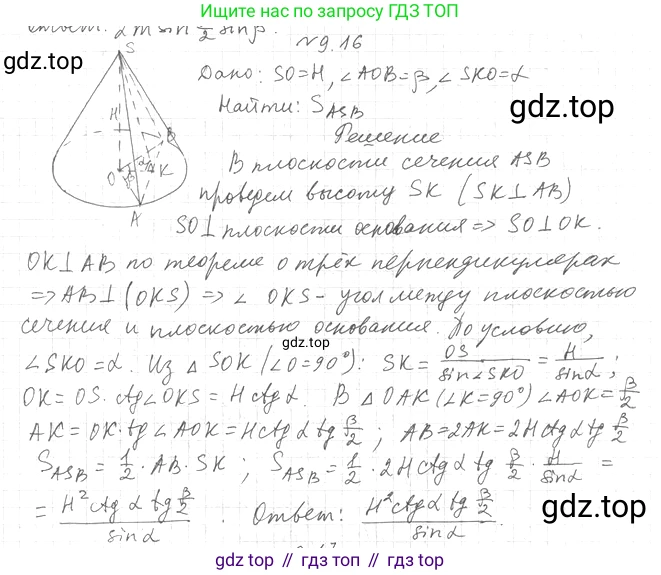 Ищите нас по запросу ГДЗ ТОП
Ответ: 2m sin β/2 sin β.
gdz.top
N 9.16
Дано: SO=H, ∠AOB=β, ∠SKO=α
Найти: S_ASB
gdz.top
Решение
S
H
B
O
β
α
K
A
В плоскости сечения ASB
gdz.top
проведем высоту SK (SK⊥AB)
SO⊥плоскости основания ⇒ SO⊥OK.
OK⊥AB по теореме о трёх перпендикулярах
⇒ AB⊥(OKS) ⇒ ∠ OKS - угол между плоскостью
сечения и плоскостью основания. По условию,
gdz.top
∠SKO=α. Из △ SOK (∠O=90°): SK = OS/sin∠SKO = H/sinα;
OK = OS · ctg∠OKS = H ctg α. В △ OAK (∠K=90°) ∠AOK = β/2
AK = OK · tg ∠AOK = H ctg α tg β/2; AB = 2AK = 2H ctg α tg β/2
S_ASB = 1/2 · AB · SK; S_ASB = 1/2 · 2H ctg α tg β/2 · H/sinα =
gdz.top
= H² ctg α tg β/2 / sinα. Ответ: H² ctg α tg β/2 / sinα.
gdz.top
gdz.top // гдз.топ // gdz.top // гдз.топ